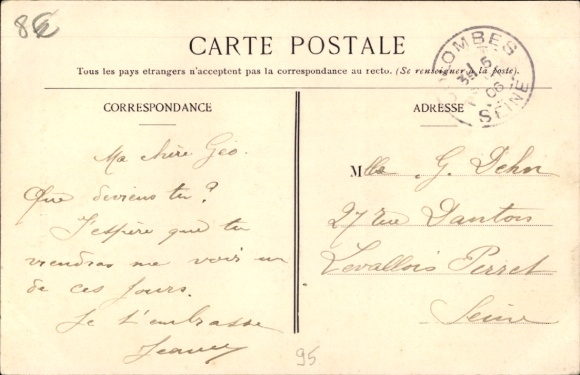 86
CARTE POSTALE
Tous les pays étrangers n'acceptent pas la correspondance au recto. (Se renseigner à la poste).
COLOMBES
1 5
35
06
SEINE
CORRESPONDANCE
Ma chère Géo.
Que deviens tu ?
J'espère que tu
viendras me voir un
de ces jours.
Je t'embrasse
ADRESSE
Mlle G. Dehn
27 rue Danton
Levallois Perret
Seine
95